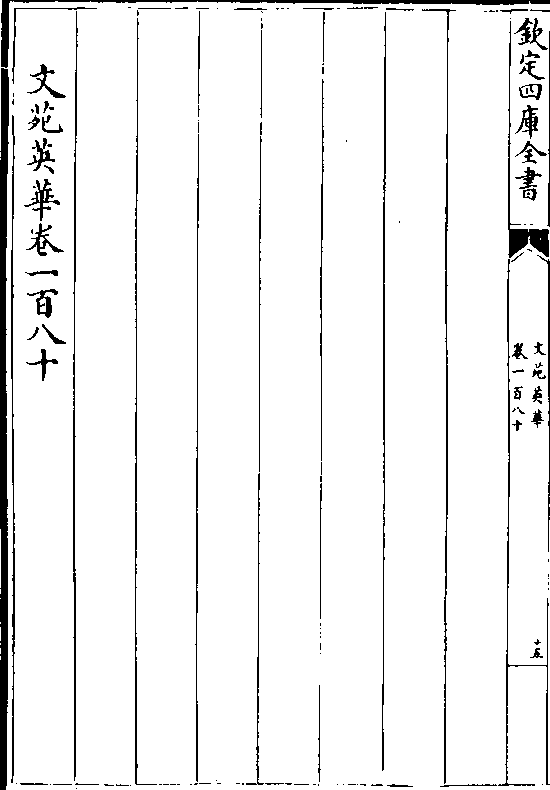 欽定四庫全書
文苑英華
卷一百八十
十五
文苑英華卷一百八十